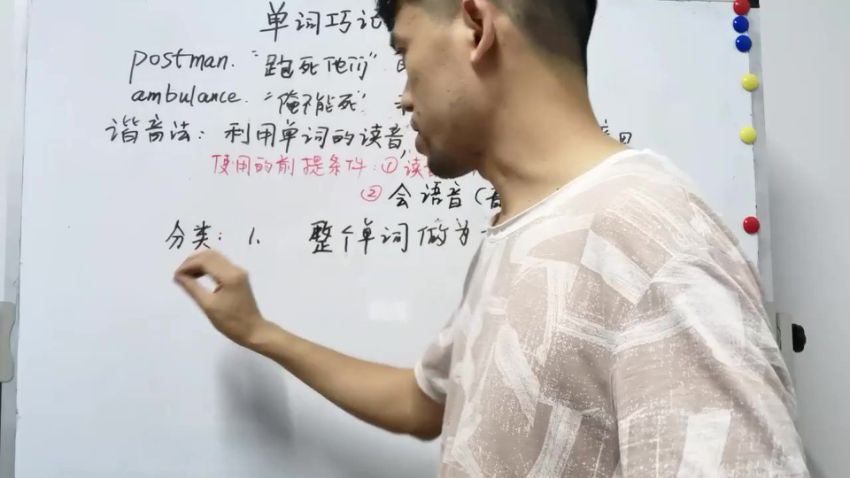 单词巧记
postman. "跑死他们"
ambulance. "俺不能死"
谐音法: 利用单词的读音,
使用的前提条件: ① 读
② 会语音(
分类: 1. 整个单词做为